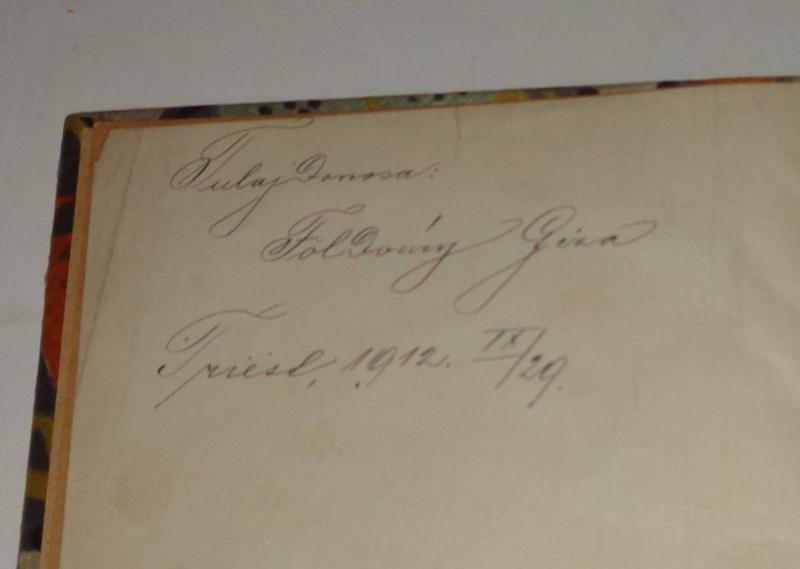 Tulajdonosa:
Földváry Géza
Triest, 1912. IX/29.